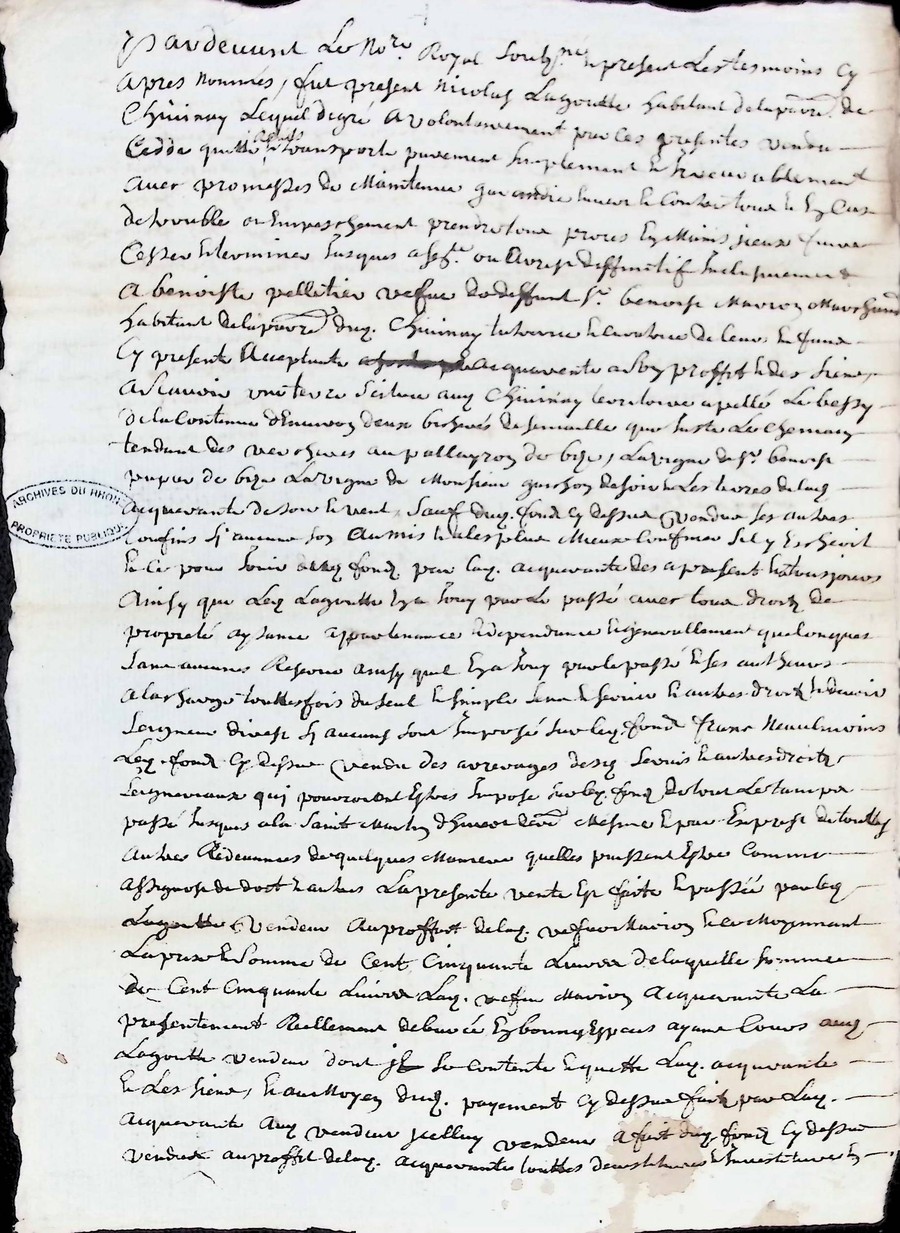 Pardevant Le No.re Royal soubz.né et present Les tesmoins Cy
apres nommés, fut present Nicolas Lagoutte habitant de la parr. de
Chivinay Lequel de gré a volontairement par ces presentes vendu
Cedde quitté et transporte purement simplement et
avec promesses de Maintenir garandir envers et Contre tous et En Cas
de trouble ou Empeschement prendre tous proces En Main
Cesser et terminer Jusques a ou deffinitif Inclusivement
A benoiste pelletier vefve de deffunt S.r benoist Marion Marchand
habitant de la parr. dud. Chivinay tutrice et curatrice de leurs Enfans
Cy presente Acceptante acquerante a son proffit et des siens
a scavoir une terre scittuee aud Chivinay territoire apellé Le bessy
de la Contenue d'Environ deux bicherés de semaille que Juste Le Chemin
tendant des vercheres au de bize, La vigne de S.r benoist
de bize La vigne de Monsieur de soir et Les terres de lad
acquerante de soir et vent, sauf dud. fond Cy dessus vendu ses autres
Confins sy aucuns son Aumis et de plus Mieux Confiner sil y Escheoit
et ce pour Jouir dud fond par lad. acquerante des a present et a tousjours
Ainsy que Led Lagoutte En a Jouy par Le passé avec tous droitz de
propieté aysance appartenance et dependance et generallement quelconques
sans aucunes Reserve ainsy quil En a Jouy par le passé et ses autheurs
a la charge touttesfois du seul et simple et servis et autres droitz et devoir
seigneur direct sy aucuns sont Imposé sur led. fond franc Neaulmoins
Led. fond Cy dessus vendu des arrerages desd servis et autres droitz
seigneuriaux qui pourroient Estre Impose sur led. fond de tout Le temps
passé Jusques a la Saint Martin d'hiver Mesme et par Exprest de touttes
Autres Redevances de quelques Maniere quelles puissent Estre Comme
et autres La presente vente Est faitte et passée par led
Lagoutte Vendeur Au proffit de lad. vefve Marion et ce Moyennant
La prix et somme de Cent Cinquante Livres de laquelle somme
de Cent Cinquante Livres Lad. vefve Marion Acquerante La
presentement Reellement delivrée En bonnes Especes ayant Cours aud.
Lagoutte vendeur dont jL se contente et quitte Lad. acquerante
et Les siens, et au Moyen dud. payement Cy dessus fait par Lad.
acquerante Aud vendeur jcelluy vendeur a fait dud. fond Cy dessus
vendus au proffit de lad. acquerante touttes et Investitures
ARCHIVES DU RHONE
PROPRIETE PUBLIQUE